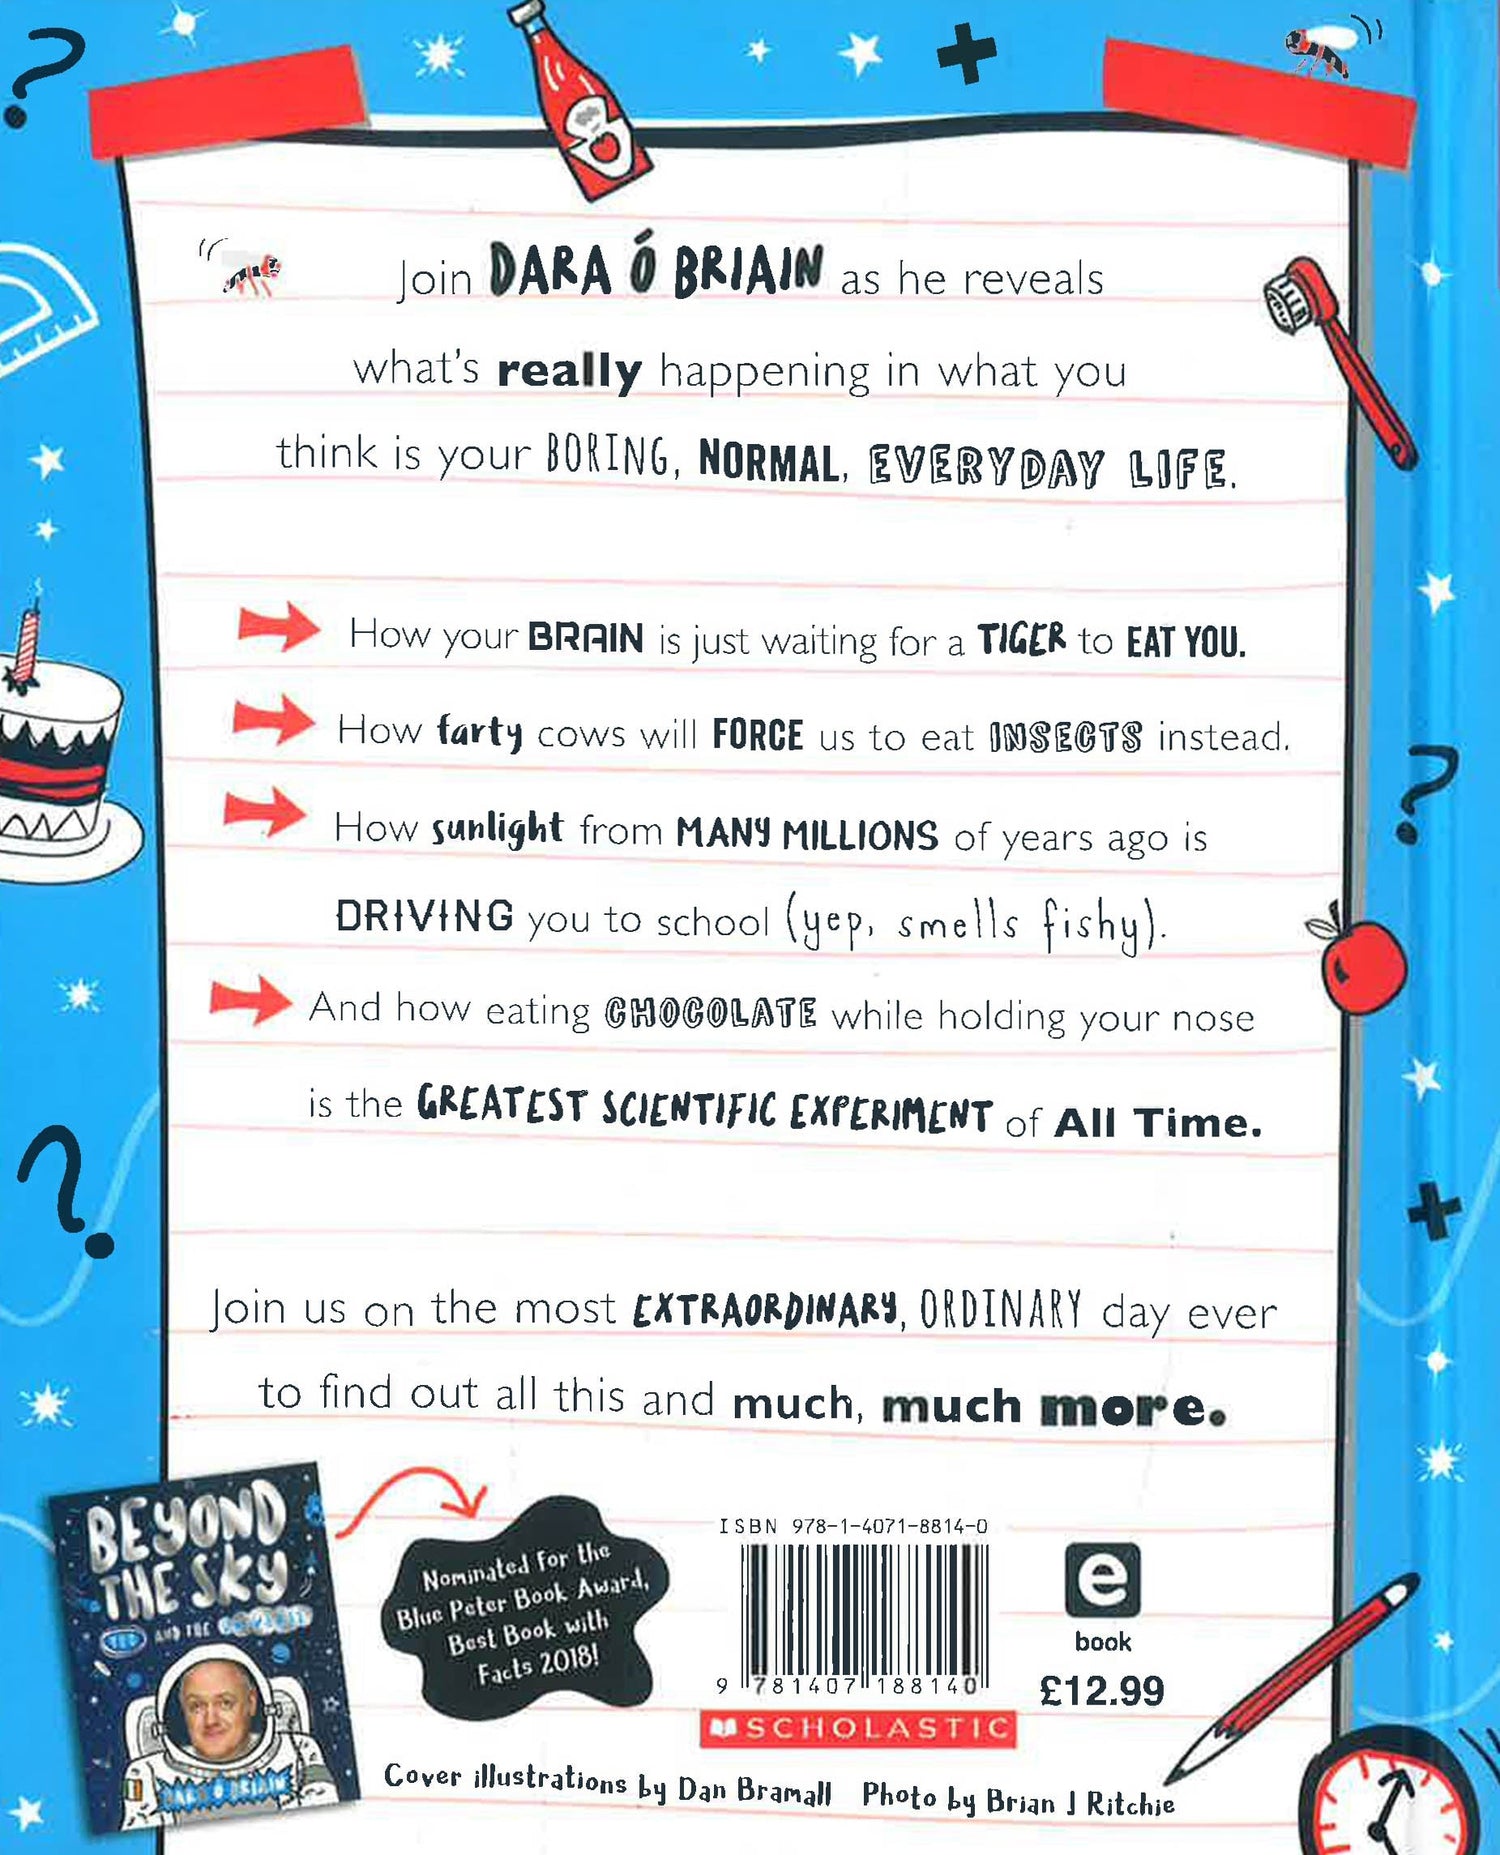 Join DARA Ó BRIAIN as he reveals
what's really happening in what you
think is your BORING, NORMAL, EVERYDAY LIFE.
How your BRAIN is just waiting for a TIGER to EAT YOU.
How farty cows will FORCE us to eat INSECTS instead.
How sunlight from MANY MILLIONS of years ago is
DRIVING you to school (yep, smells fishy).
And how eating CHOCOLATE while holding your nose
is the GREATEST SCIENTIFIC EXPERIMENT of All Time.
Join us on the most EXTRAORDINARY, ORDINARY day ever
to find out all this and much, much more.
BEYOND
THE SKY
AND THE
DARA Ó BRIAIN
Nominated for the
Blue Peter Book Award,
Best Book with
Facts 2018!
ISBN 978-1-4071-8814-0
9 781407 188140
SCHOLASTIC
e
book
£12.99
Cover illustrations by Dan Bramall Photo by Brian J Ritchie